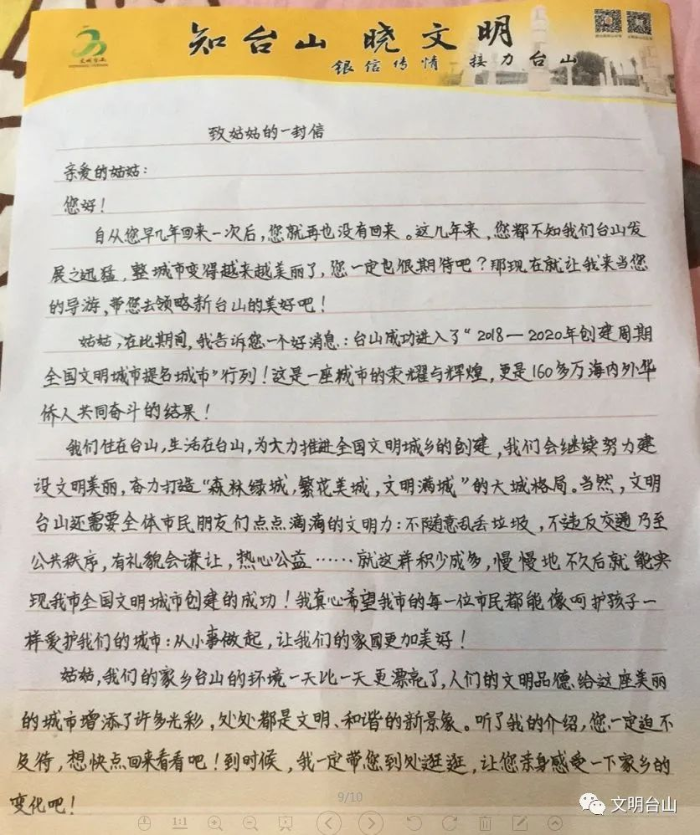 知台山 晓文明
银信传情 接力台山
致姑姑的一封信
亲爱的姑姑：
您好！
自从您早几年回来一次后，您就再也没有回来。这几年来，您都不知我们台山发
展之迅猛，整城市变得越来越美丽了，您一定也很期待吧？那现在就让我来当您
的导游，带您去领略新台山的美好吧！
姑姑，在此期间，我告诉您一个好消息：台山成功进入了“2018—2020年创建周期
全国文明城市提名城市”行列！这是一座城市的荣耀与辉煌，更是160多万海内外华
侨人共同奋斗的结果！
我们住在台山，生活在台山，为大力推进全国文明城乡的创建，我们会继续努力建
设文明美丽，奋力打造“森林绿城，繁花美城，文明满城”的大城格局。当然，文明
台山还需要全体市民朋友们点点滴滴的文明力：不随意乱丢垃圾，不违反交通乃至
公共秩序，有礼貌会谦让，热心公益……就这样积少成多，慢慢地不久后就能实
现我市全国文明城市创建的成功！我真心希望我市的每一位市民都能像呵护孩子一
样爱护我们的城市：从小事做起，让我们的家园更加美好！
姑姑，我们的家乡台山的环境一天比一天更漂亮了，人们的文明品德给这座美丽
的城市增添了许多光彩，处处都是文明、和谐的新景象。听了我的介绍，您一定迫不
及待，想快点回来看看吧！到时候，我一定带您到处逛逛，让您亲身感受一下家乡的
变化吧！
9/10
1:1
文明台山